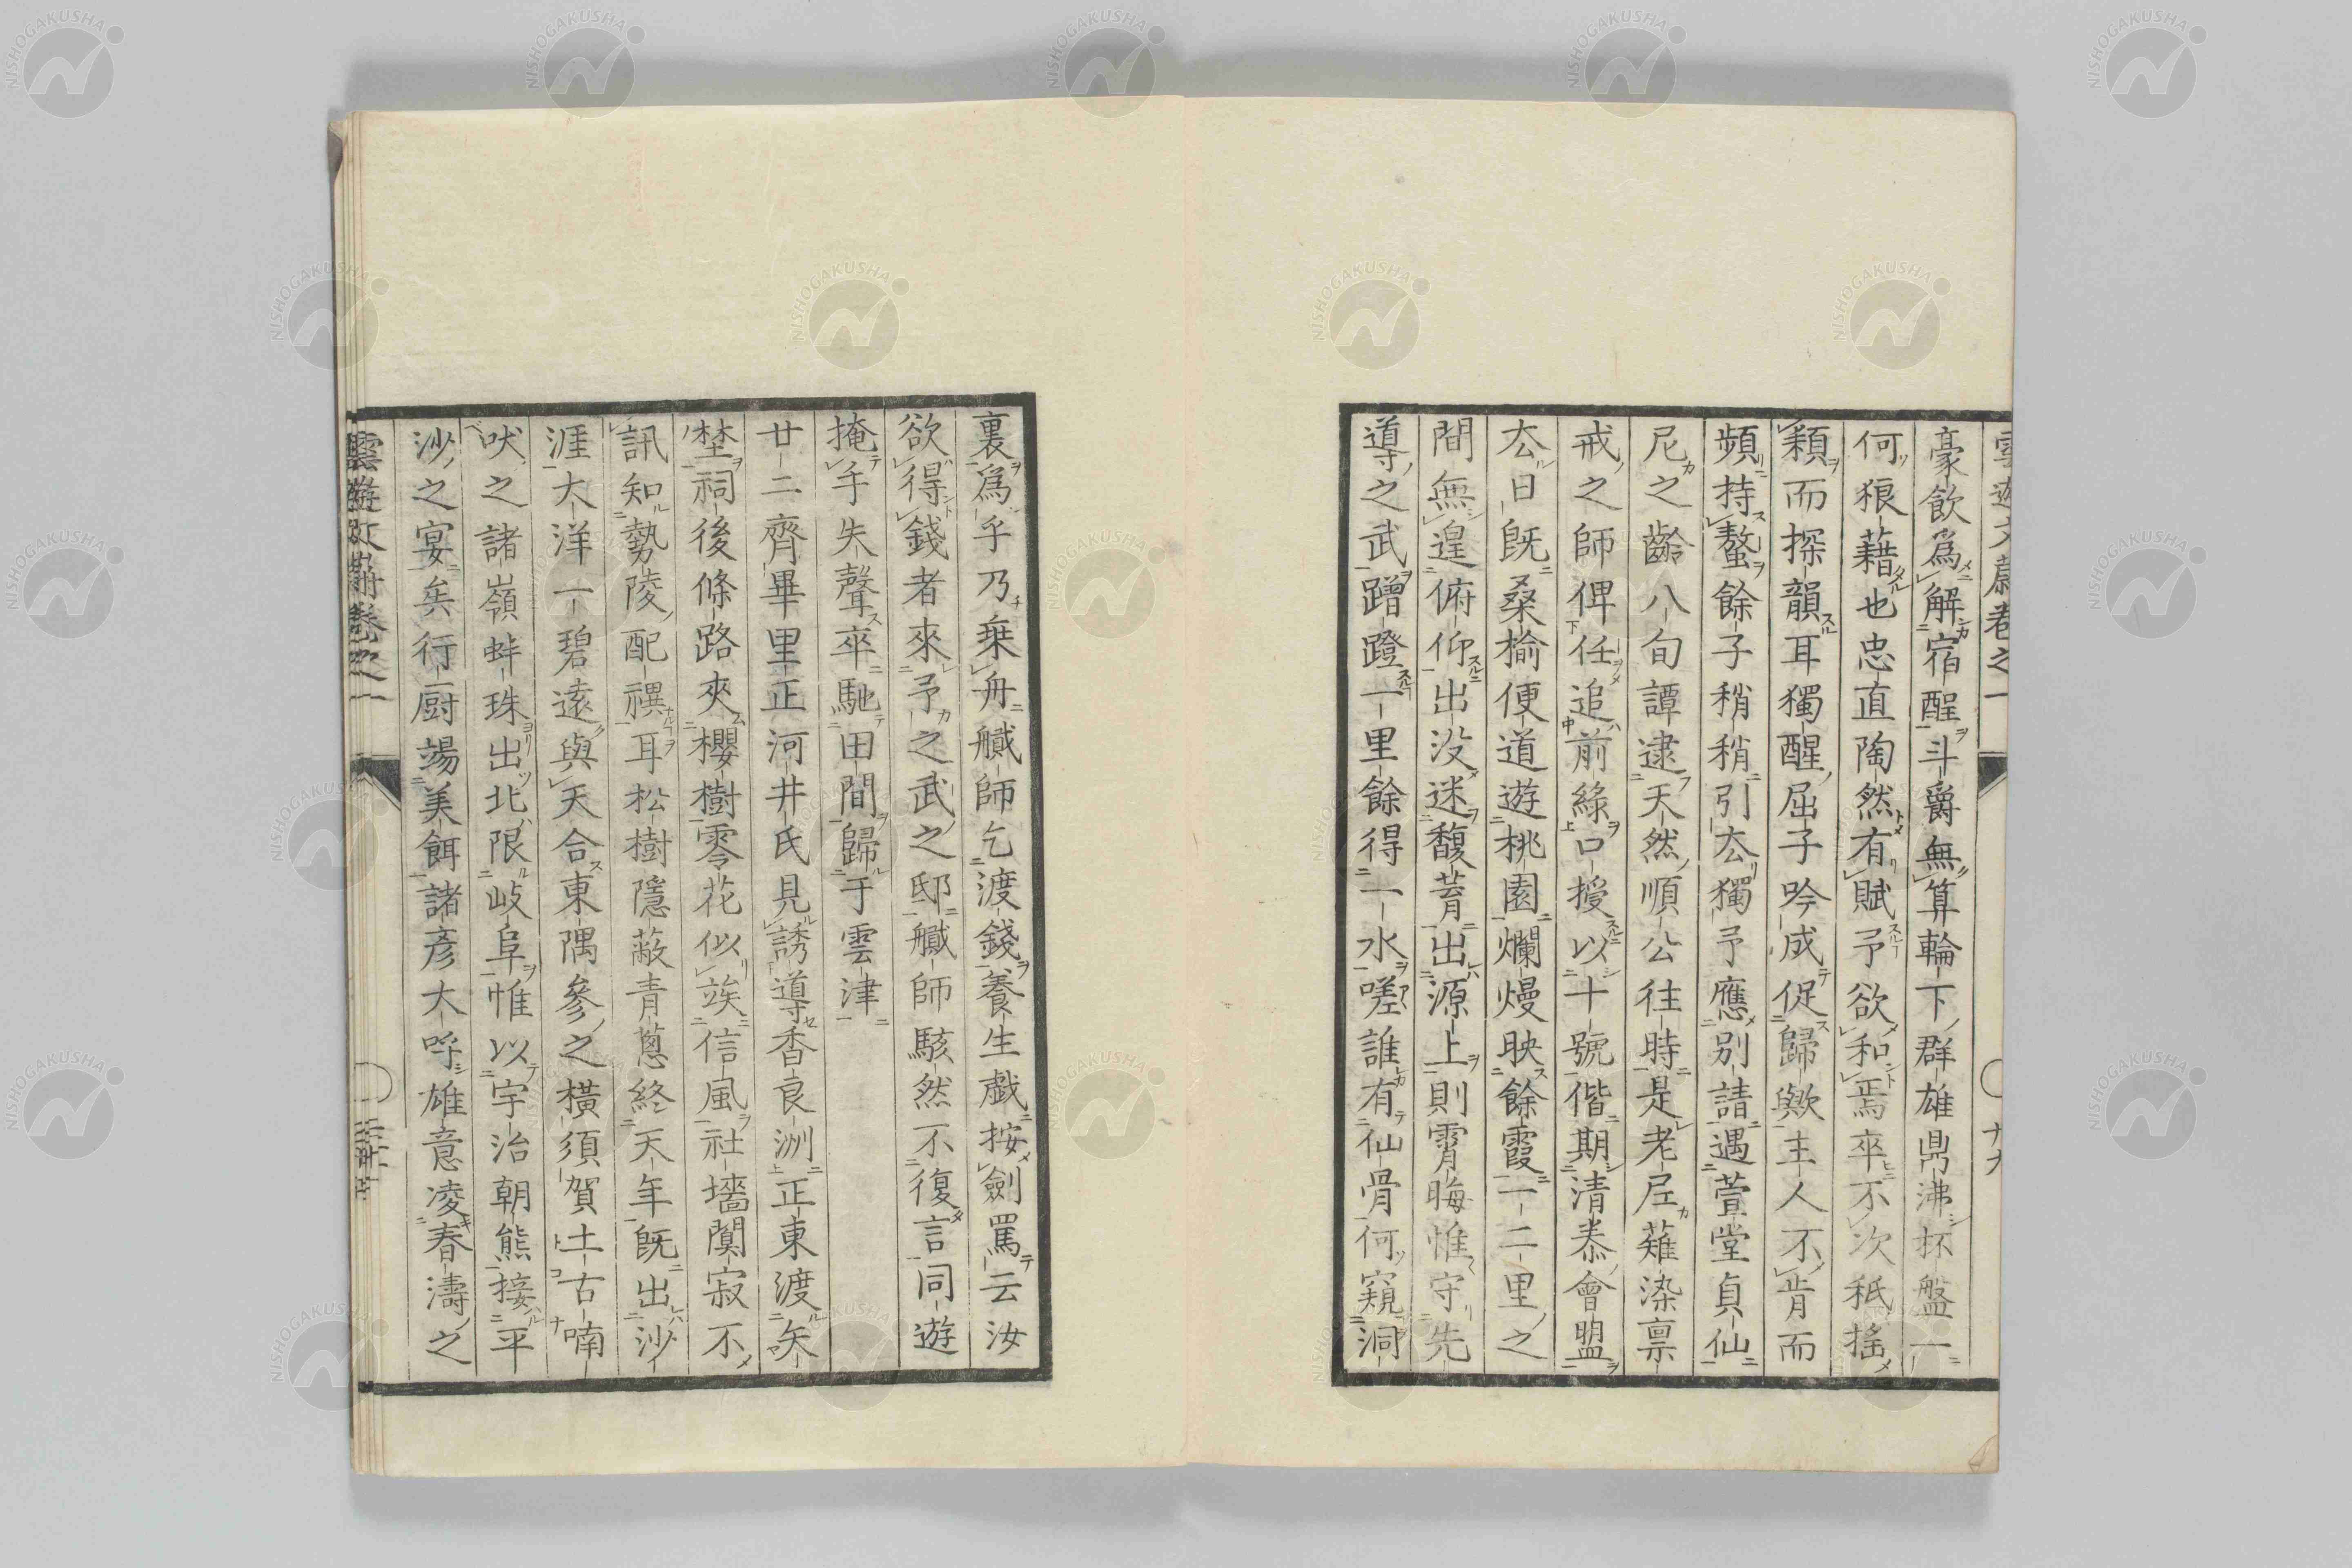 豪飲爲解宿酲斗爵無算輪下群雄鼎沸杯盤一
何狼藉也忠直陶然有賦予欲和焉卒不次秖搖
頛而探韻耳獨醒屈子吟成促歸歟主人不肯而
頻持螯餘子稍稍引厺獨予應別請遇萱堂貞仙
尼之齡八旬譚逮天然順公往時是老尼薙染禀
戒之師俾任追前綠口授以十號偕期清泰會盟
厺日既桑榆便道遊桃園爛熳映餘霞一二里之
間無遑俯仰出沒迷馥菁出源上則霄晦惟守先
導之武蹭蹬一里餘得一水嗟誰有仙骨何窺洞
裏爲乎乃乗舟艤師乞渡錢養生戯按劍罵云汝
欲得錢者來予之武之邸艤師駭然不復言同遊
掩手失聲卒馳田間歸于雲津
廿二齊畢里正河井氏見誘導香良洲正東渡矣
埜祠後條路夾櫻樹零花似竢信風社墻闃寂不
訊知勢陵配禩耳松樹隱蔽青蔥終天年既出沙
涯大洋一碧遠與天合東隅參之橫須賀土古喃
吠之諸嶺蚌珠出北限岐阜惟以宇治朝熊接平
沙之宴矣行厨塲美餌諸彦大呼雄意凌春濤之
雲遊文蔚卷之一
NISHOGAKUSHA